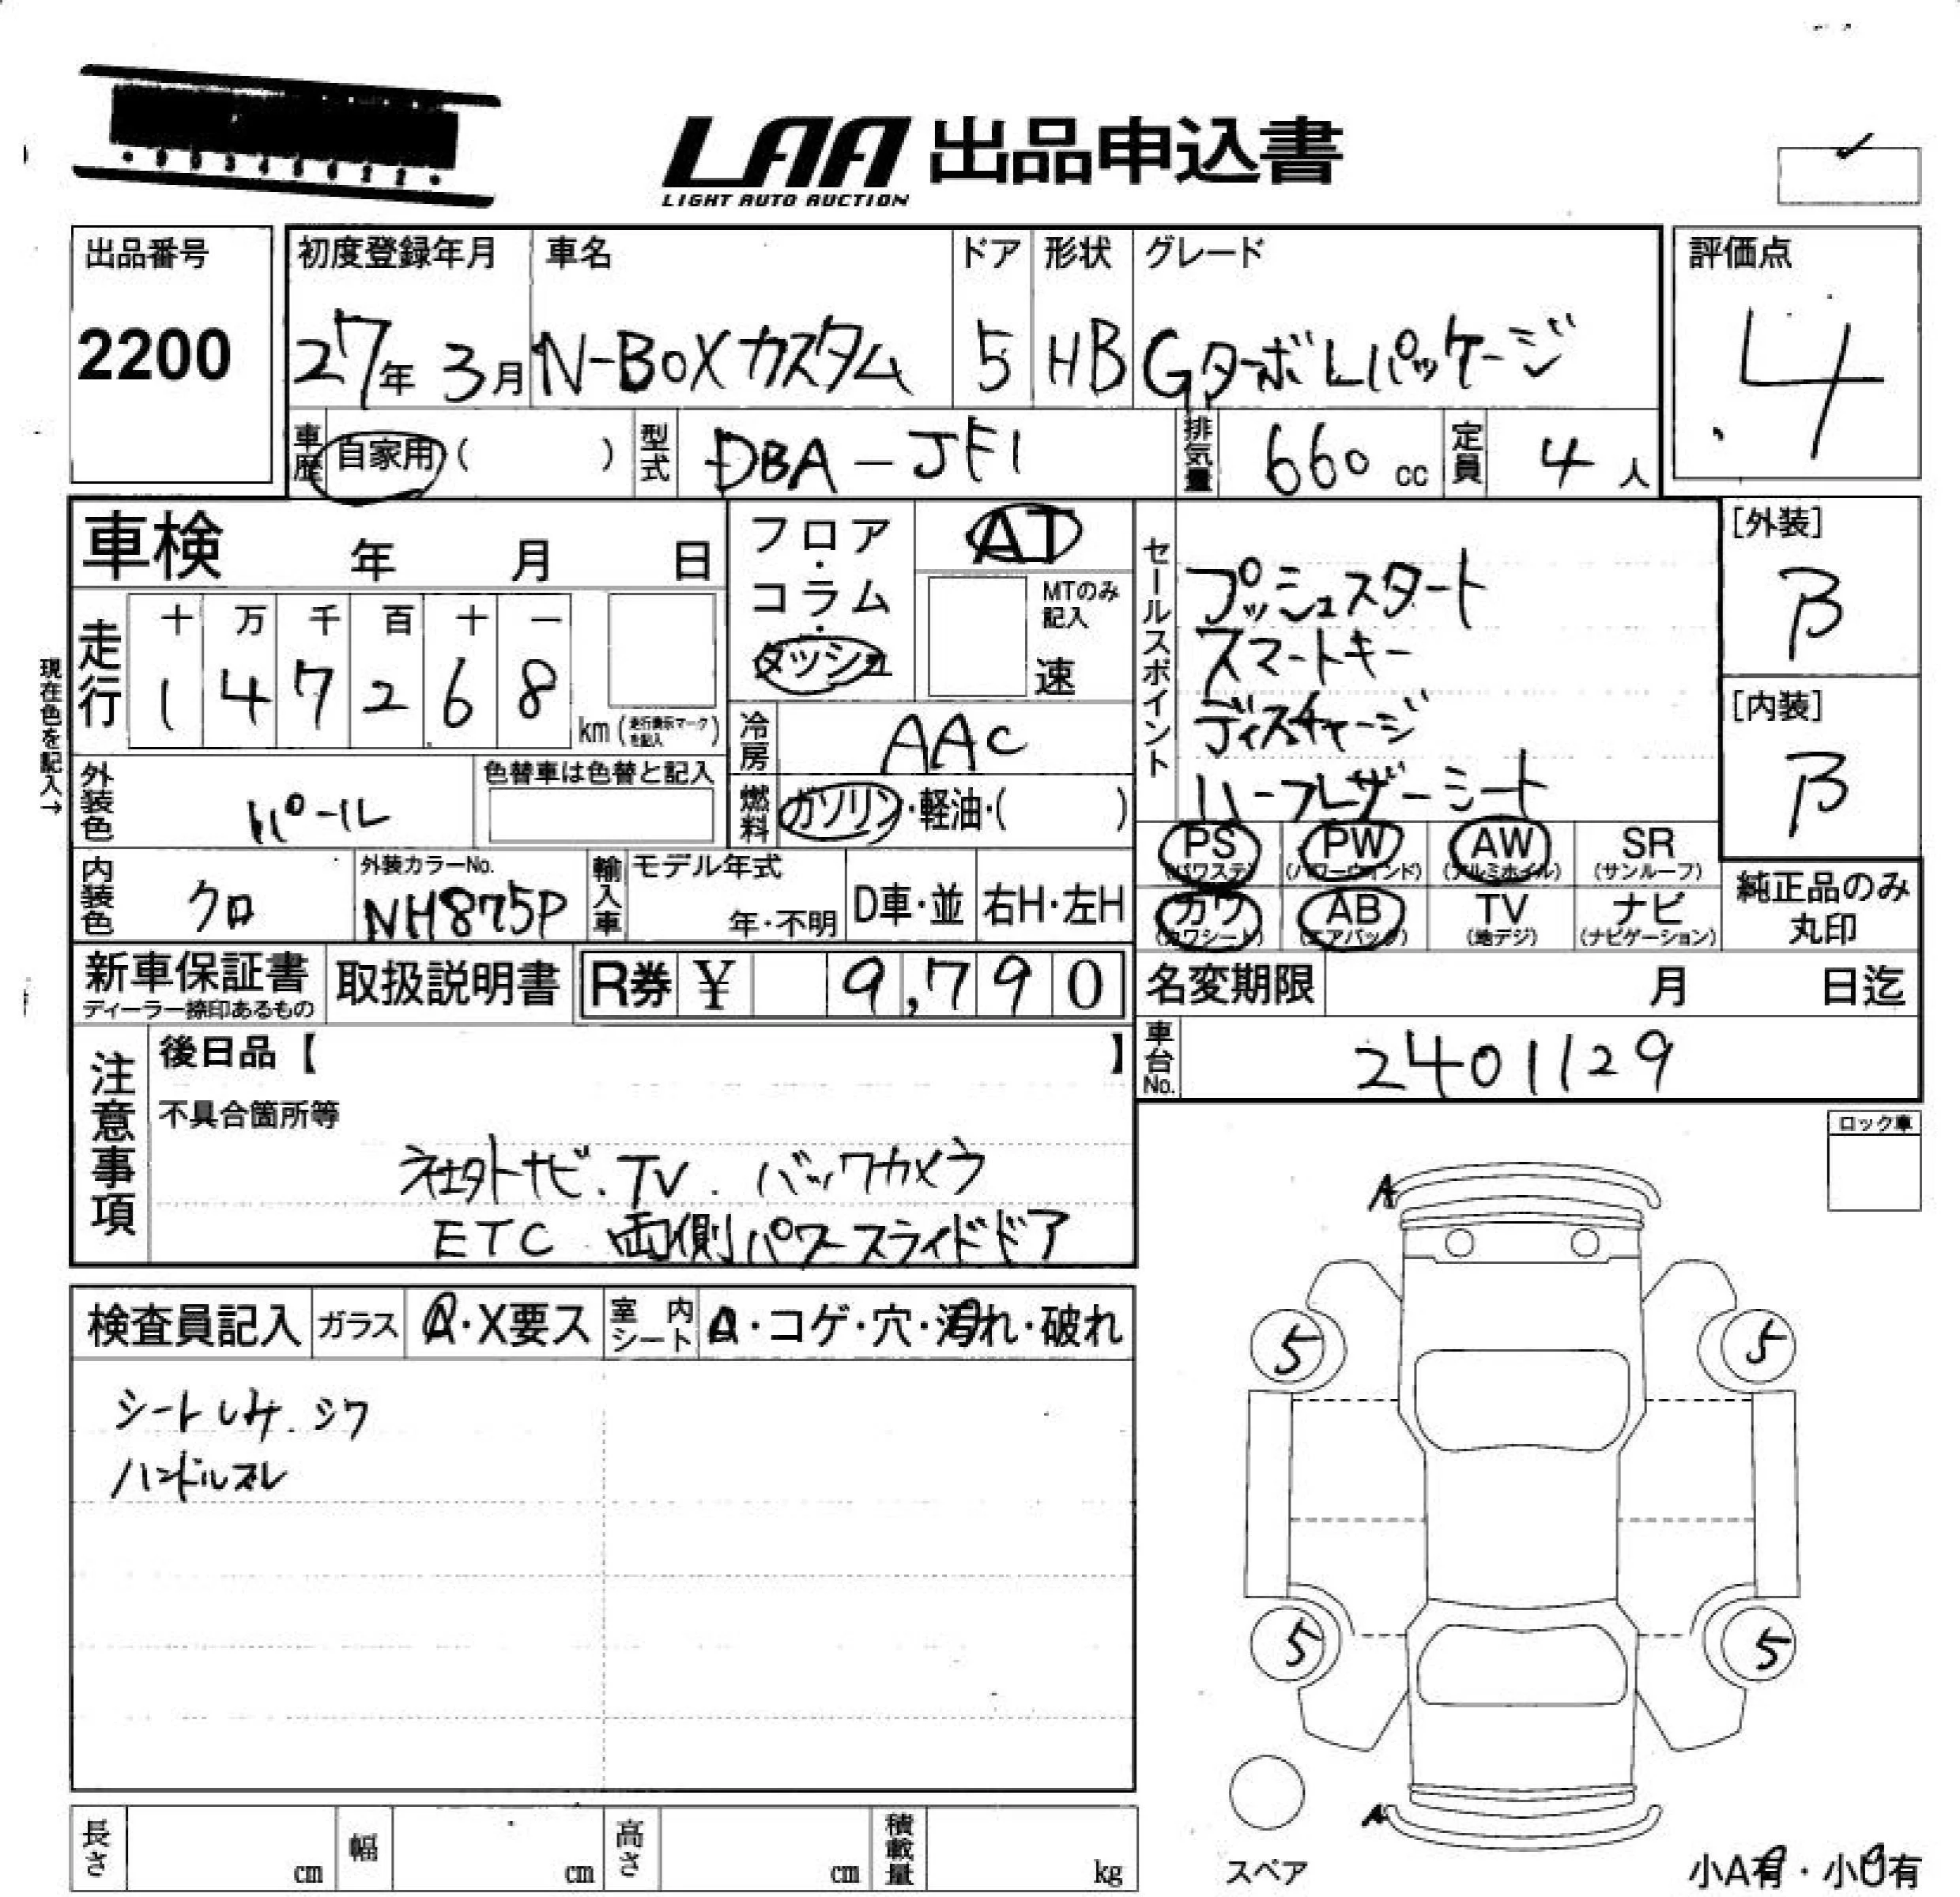 LAA 出品申込書
LIGHT AUTO AUCTION
出品番号
2200
初度登録年月 車名 ドア 形状 グレード
27年 3月 N-BOXカスタム 5 HB GターボLパッケージ
評価点
4
車歴 自家用 ( ) 型式 DBA-JF1 排気量 660 cc 定員 4 人
車検 年 月 日
フロア・コラム・ダッシュ
AT
MTのみ記入
速
現在色を記入→
走行 十 万 千 百 十 一
1 4 7 2 6 8 km (走行表示マークを記入)
冷房 AAC
外装色 パール
色替車は色替と記入
燃料 ガソリン・軽油・( )
内装色 クロ
外装カラーNo.
NH875P
輸入車 モデル年式
年・不明 D車・並 右H・左H
セールスポイント
プッシュスタート
スマートキー
ディスチャージ
ハーフレザーシート
[外装]
B
[内装]
B
PS (パワステ) PW (パワーウィンド) AW (アルミホイル) SR (サンルーフ)
カワ (カワシート) AB (エアバッグ) TV (地デジ) ナビ (ナビゲーション)
純正品のみ
丸印
新車保証書
ディーラー捺印あるもの
取扱説明書
R券 ¥ 9,790
名変期限 月 日迄
車台No. 2401129
注意事項
後日品【 】
不具合箇所等
社外ナビ.TV.バックカメラ
ETC 両側パワースライドドア
ロック車
検査員記入 ガラス A・X要ス 室内シート ・コゲ・穴・汚れ・破れ
シートしみ.シワ
ハンドルスレ
A
5 5
5 5
A
スペア
小A有・小U有
長さ cm 幅 cm 高さ cm 積載量 kg